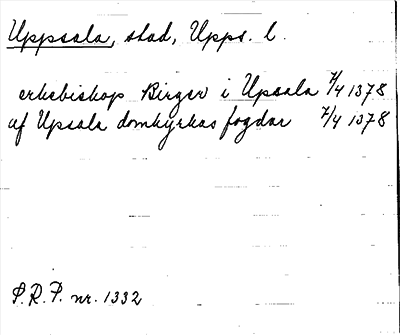 Uppsala, stad, Upps. l.
erkebiskop Birger i Upsala 7/4 1378
af Upsala domkyrkas fogdar 7/4 1378
S.R.P. nr. 1332